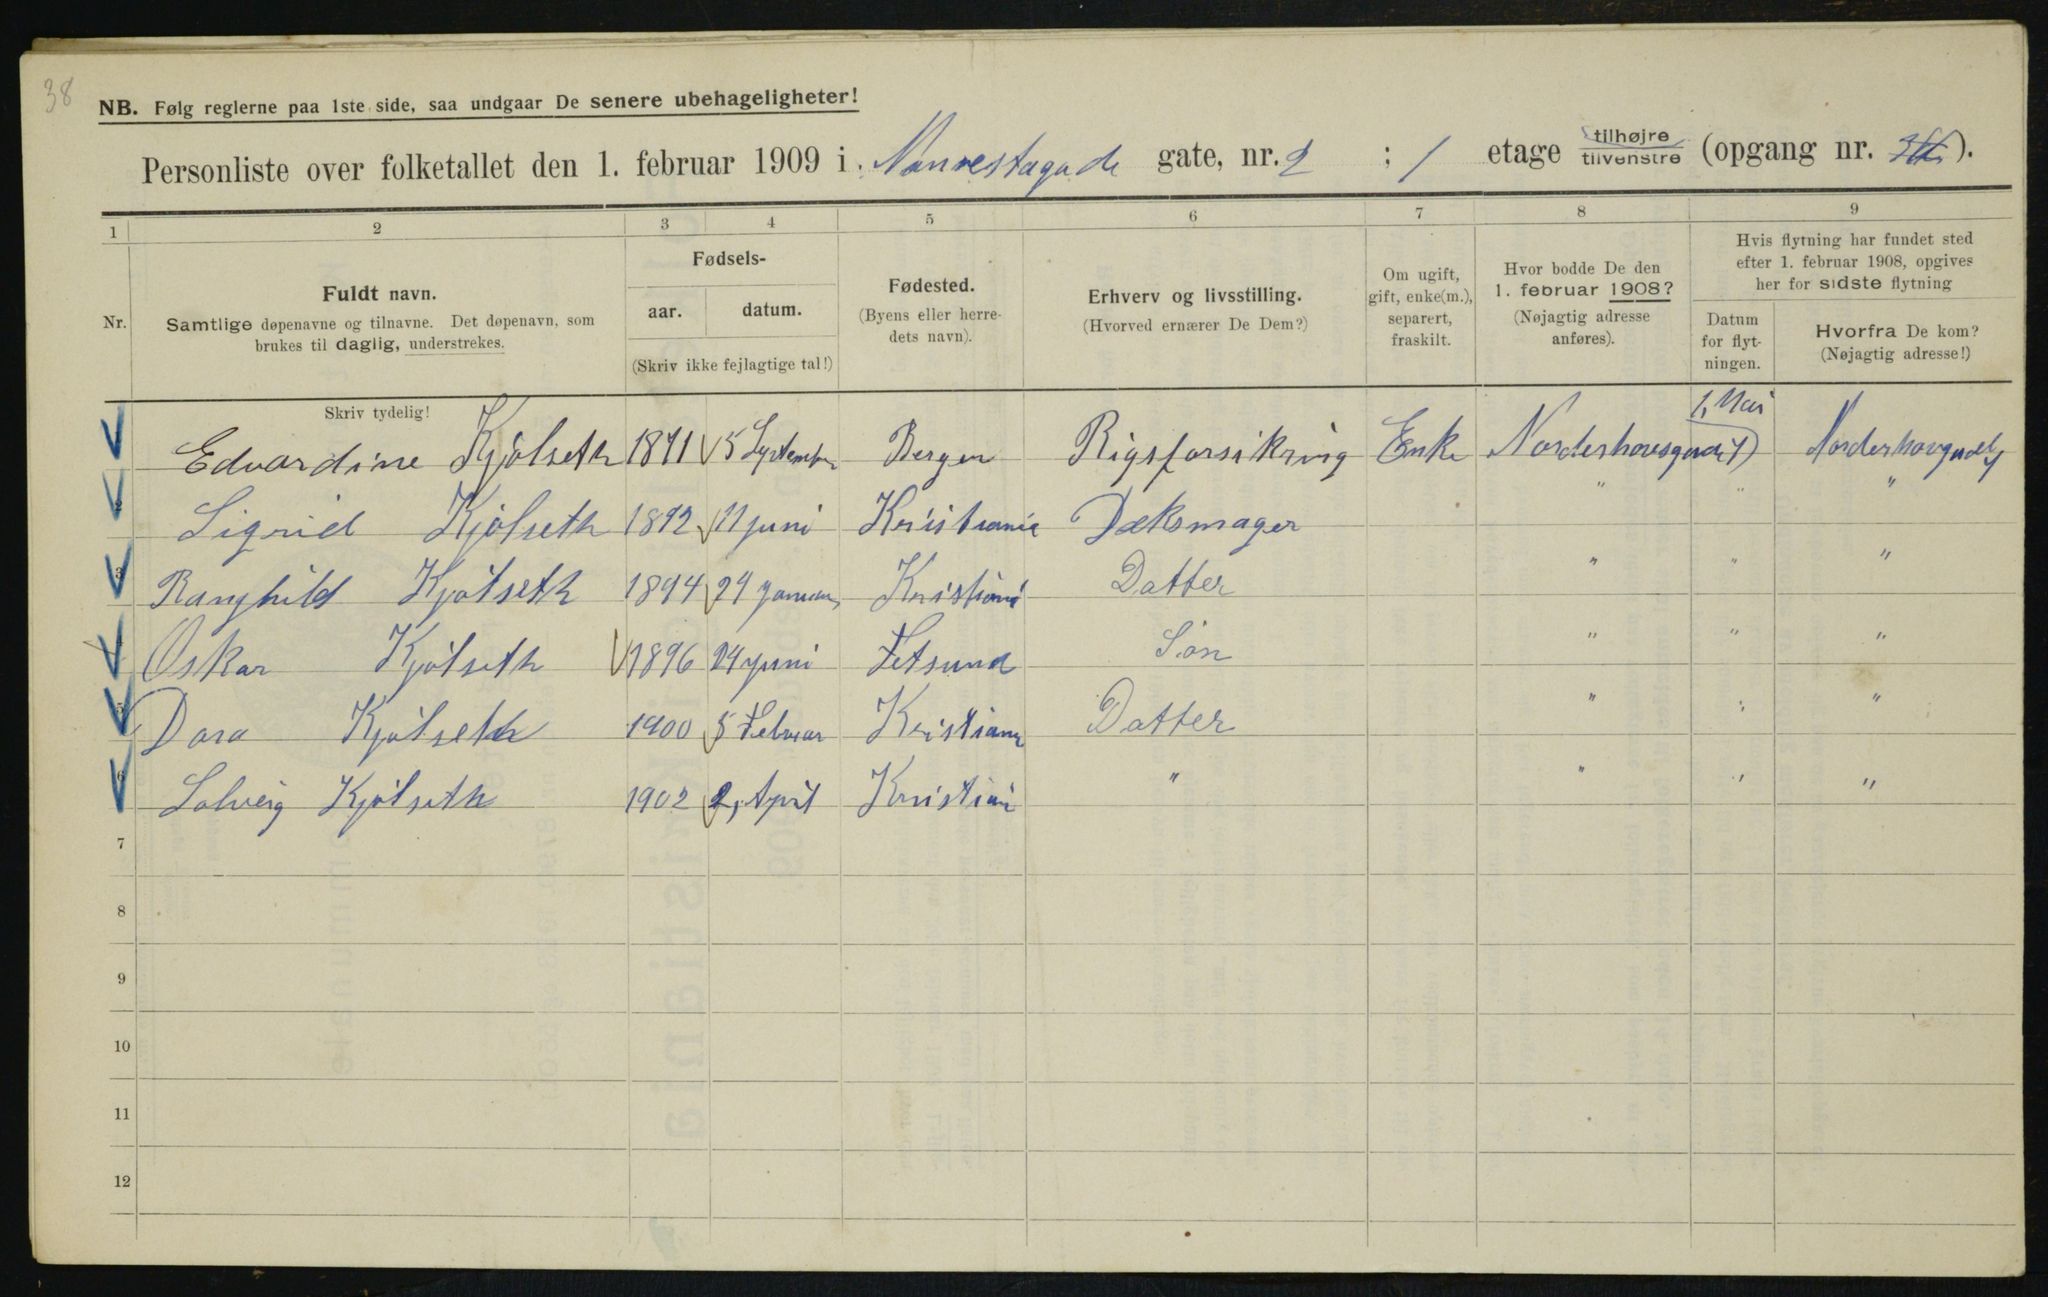 38
NB. Følg reglerne paa 1ste side, saa undgaar De senere ubehageligheter!
Personliste over folketallet den 1. februar 1909 i Nannestagade gate, nr. 2 ; 1 etage tilhøjre tilvenstre (opgang nr. ).
1 2 3 4 5 6 7 8 9
Nr.
Fuldt navn.
Samtlige døpenavne og tilnavne. Det døpenavn, som
brukes til daglig, understrekes.
Fødsels-
aar. datum.
(Skriv ikke fejlagtige tal!)
Fødested.
(Byens eller herre-
dets navn).
Erhverv og livsstilling.
(Hvorved ernærer De Dem?)
Om ugift,
gift, enke(m.),
separert,
fraskilt.
Hvor bodde De den
1. februar 1908?
(Nøjagtig adresse
anføres).
Hvis flytning har fundet sted
efter 1. februar 1908, opgives
her for sidste flytning
Datum
for flyt-
ningen.
Hvorfra De kom?
(Nøjagtig adresse!)
Skriv tydelig!
1, Mai
Edvardine Kjölseth 1871 5 September Bergen Rigsforsikring Enke Norderhovsgad 17 Norderhovgad 17
2 Sigrid Kjölseth 1892 11 juni Kristiania Dæksmager " " "
3 Ranghild Kjölseth 1894 24 januar Kristiania Datter " " "
4 Oskar Kjölseth 1896 24 juni Fetsund Sön " " "
5 Dora Kjölseth 1900 5 Februar Kristiania Datter " " "
6 Solveig Kjölseth 1902 2, April Kristiani " " " "
7
8
9
10
11
12